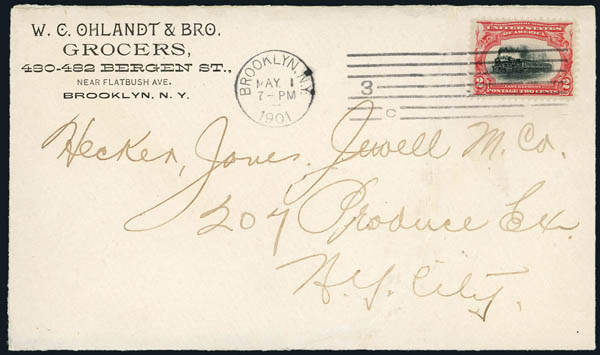 W. C. OHLANDT & BRO.
GROCERS,
480-482 BERGEN ST.,
NEAR FLATBUSH AVE.
BROOKLYN, N. Y.
BROOKLYN, N.Y.
MAY 1
7-PM
1901
3
C
UNITED STATES
OF AMERICA
FAST EXPRESS
2 POSTAGE TWO CENTS 2
Hecker, Jones, Jewell M. Co.
207 Produce Ex.
N.Y. City.